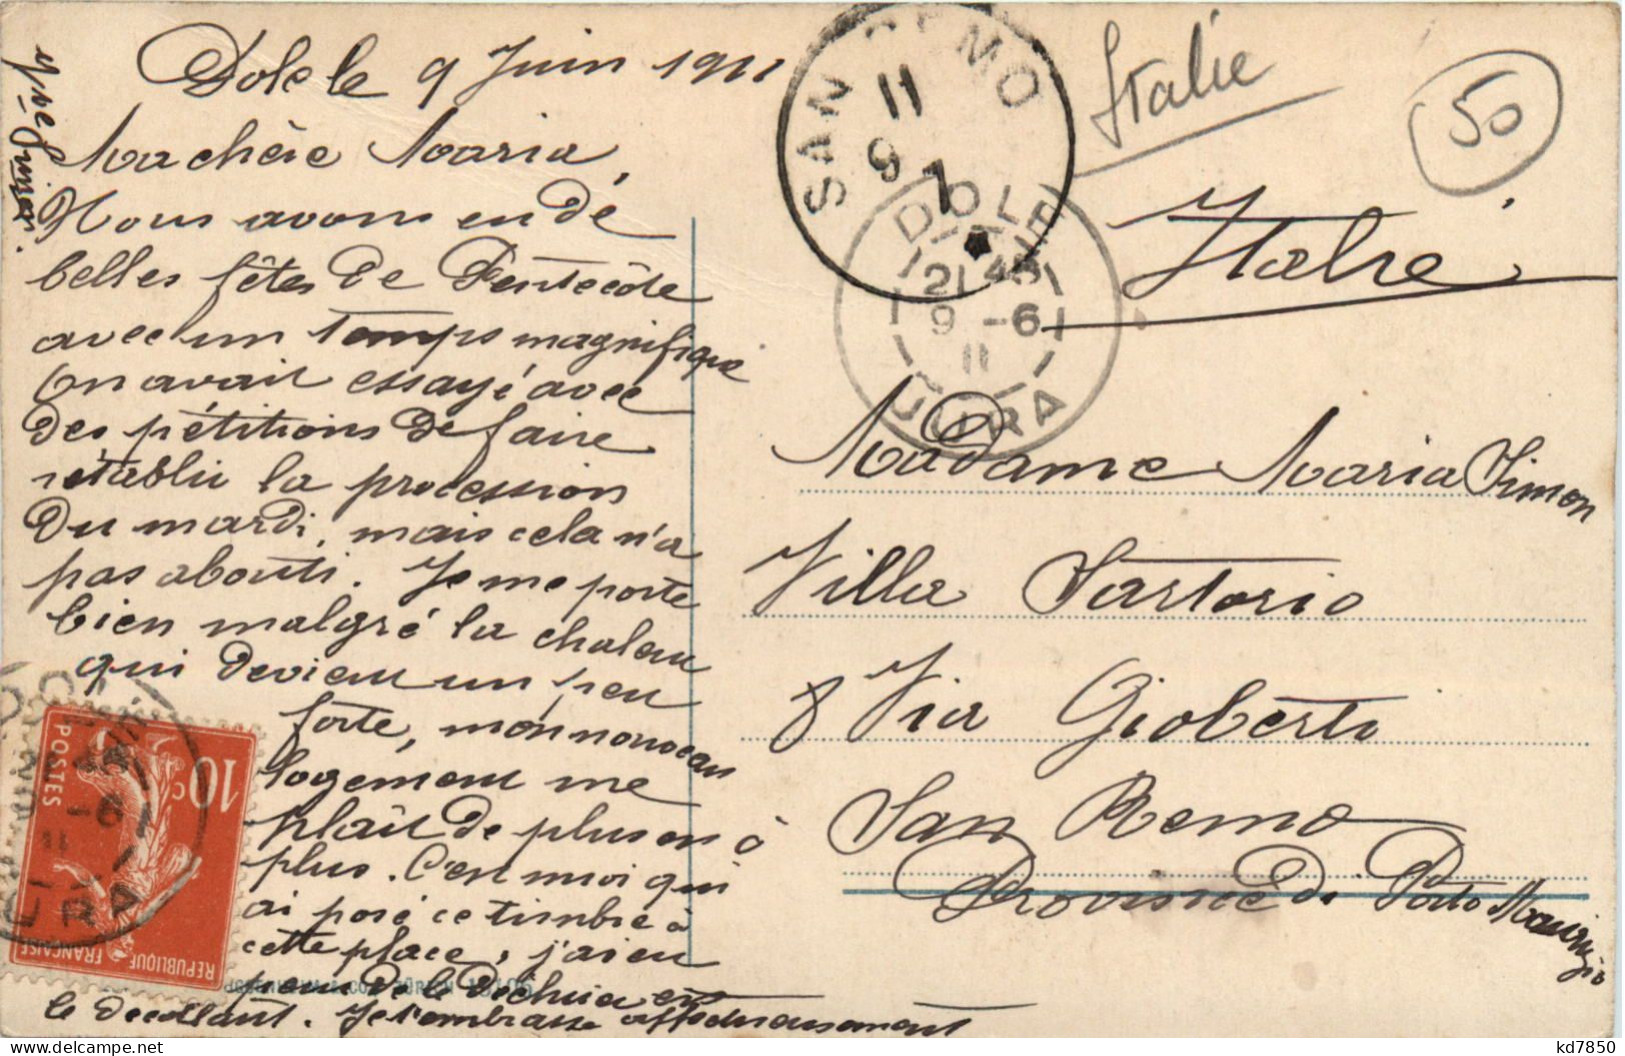 Dole le 9 Juin 1911
Ma chère Maria,
Nous avons eu de
belles fêtes de Pentecôte
avec un temps magnifique
On avait essayé avec
des pétitions de faire
rétablir la procession
du mardi, mais cela n'a
pas abouti. Je me porte
bien malgré la chaleur
qui devient un peu
forte, mon nouveau
logement me
plaît de plus en
plus. C'est moi qui
ai posé ce timbre à
cette place, j'ai eu
peur de le déchirer en
le décollant. Je t'embrasse affectueusement
SAN REMO
11
9 7
DOLE
21 45
9 -6
11
JURA
Italie
50
Italie
Madame Maria Simon
Villa Sartorio
8 Via Gioberti
San Remo
Province di Porto Maurizio
10c
POSTES
REPUBLIQUE FRANÇAISE
-6
11
JURA
kd7850